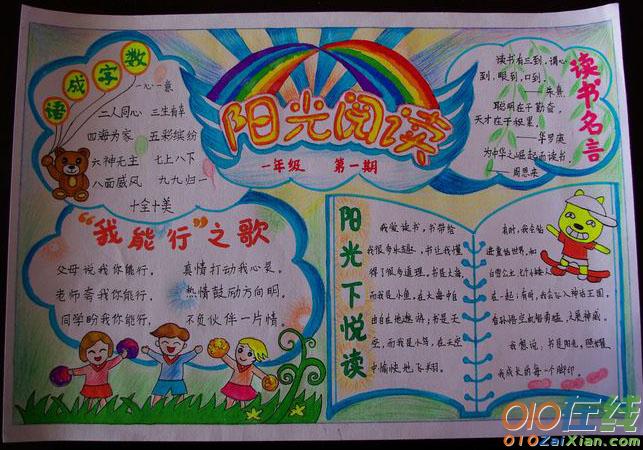 数字成语
一心一意
二人同心 三生有幸
四海为家 五彩缤纷
六神无主 七上八下
八面威风 九九归一
十全十美
阳光阅读
一年级 第一期
读书名言
读书有三到，谓心
到，眼到，口到。
——朱熹
聪明在于勤奋，
天才在于积累。
——华罗庚
为中华之崛起而读书。
——周恩来
“我能行”之歌
父母说我你能行， 真情打动我心灵。
老师夸我你能行， 热情鼓励方向明。
同学盼我你能行， 不负伙伴一片情。
阳光下悦读
我爱读书，书带给
我很多乐趣，书让我懂
得了很多道理。书是大海
而我是小鱼，在大海中自
由自在地遨游；书是天
空，而我是小鸟，在天空
中愉快地飞翔。
有时，我会钻
进童话世界，和
白雪公主、七个小矮人
在一起；有时，我会飞入神话王国，
和孙悟空 大展神威。
我想说，书是阳光，照耀
我成长的每一个脚印。
010在线
010ZaiXian.com